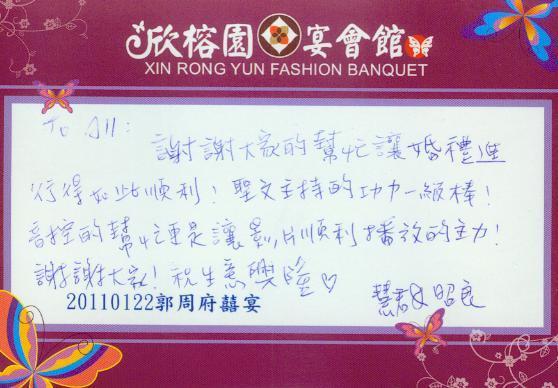 欣榕園宴會館
XIN RONG YUN FASHION BANQUET
To All:
謝謝大家的幫忙讓婚禮進
行得如此順利!聖文主持的功力一級棒!
音控的幫忙更是讓影片順利播放的主力!
謝謝大家!祝生意興隆♡
20110122郭周府囍宴
慧君&昭良